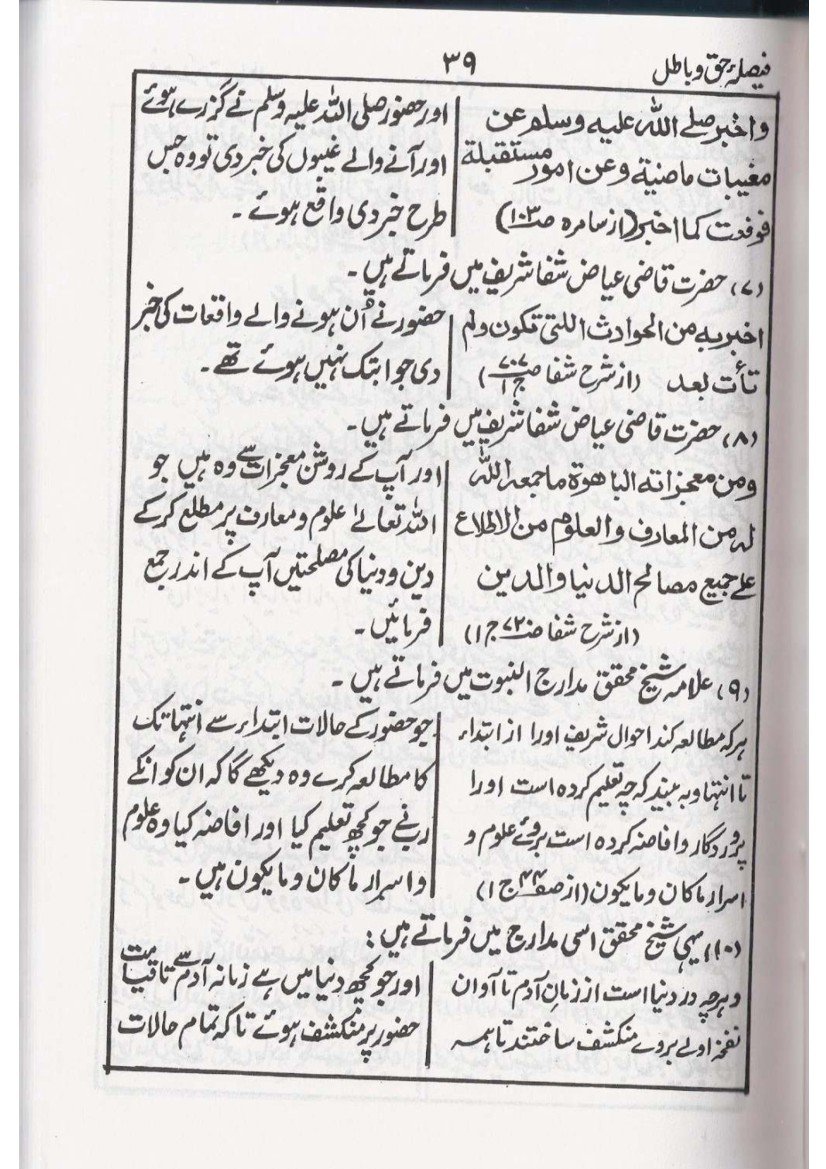 فیصلۂ حق و باطل
۳۹
واخبر صلے اللہ علیہ وسلم عن
مغیبات ماضیة وعن امور مستقبلة
فوقعت کما اخبر (از سامرہ صـ۱۰۳)
اور حضور صلی اللہ علیہ وسلم نے گزرے ہوئے
اور آنے والے غیبوں کی خبر دی تو وہ جس
طرح خبر دی واقع ہوئے ۔
(۷) حضرت قاضی عیاض شفا شریف میں فرماتے ہیں ۔
اخبر بہ من الحوادث اللتی تکون ولم
تأت بعد (از شرح شفا صـ۷۰۷ ج۱)
حضور نے ان ہونے والے واقعات کی خبر
دی جو ابتک نہیں ہوئے تھے ۔
(۸) حضرت قاضی عیاض شفا شریف میں فرماتے ہیں ۔
ومن معجزاتہ الباھرة ما جمعہ اللہ
لہ من المعارف والعلوم من الاطلاع
علے جمیع مصالح الدنیا والدین
(از شرح شفا صـ۷۲ ج۱)
اور آپ کے روشن معجزات سے وہ ہیں جو
اللہ تعالےٰ علوم و معارف پر مطلع کر کے
دین و دنیا کی مصلحتیں آپ کے اندر جمع
فرمائیں ۔
(۹) علامہ شیخ محقق مدارج النبوت میں فرماتے ہیں ۔
ہر کہ مطالعہ کند احوال شریف اورا از ابتداء
تا انتہا و بہ بیند کہ چہ تعلیم کردہ است اورا
پروردگار و افاضہ کردہ است بروئے علوم و
اسرار ماکان و مایکون (از صـ۴۴ ج۱)
جو حضور کے حالات ابتداء سے انتہا تک
کا مطالعہ کرے وہ دیکھے گا کہ ان کو انکے
رب نے جو کچھ تعلیم کیا اور افاضہ کیا وہ علوم
و اسرار ماکان و مایکون ہیں ۔
(۱۰) یہی شیخ محقق اسی مدارج میں فرماتے ہیں :
وہر چہ در دنیا است از زمان آدم تا آوان
نفخۂ اولے بروے منکشف ساختند تا ہمہ
اور جو کچھ دنیا میں ہے زمانہ آدم سے تا قیامت
حضور پر منکشف ہوئے تاکہ تمام حالات